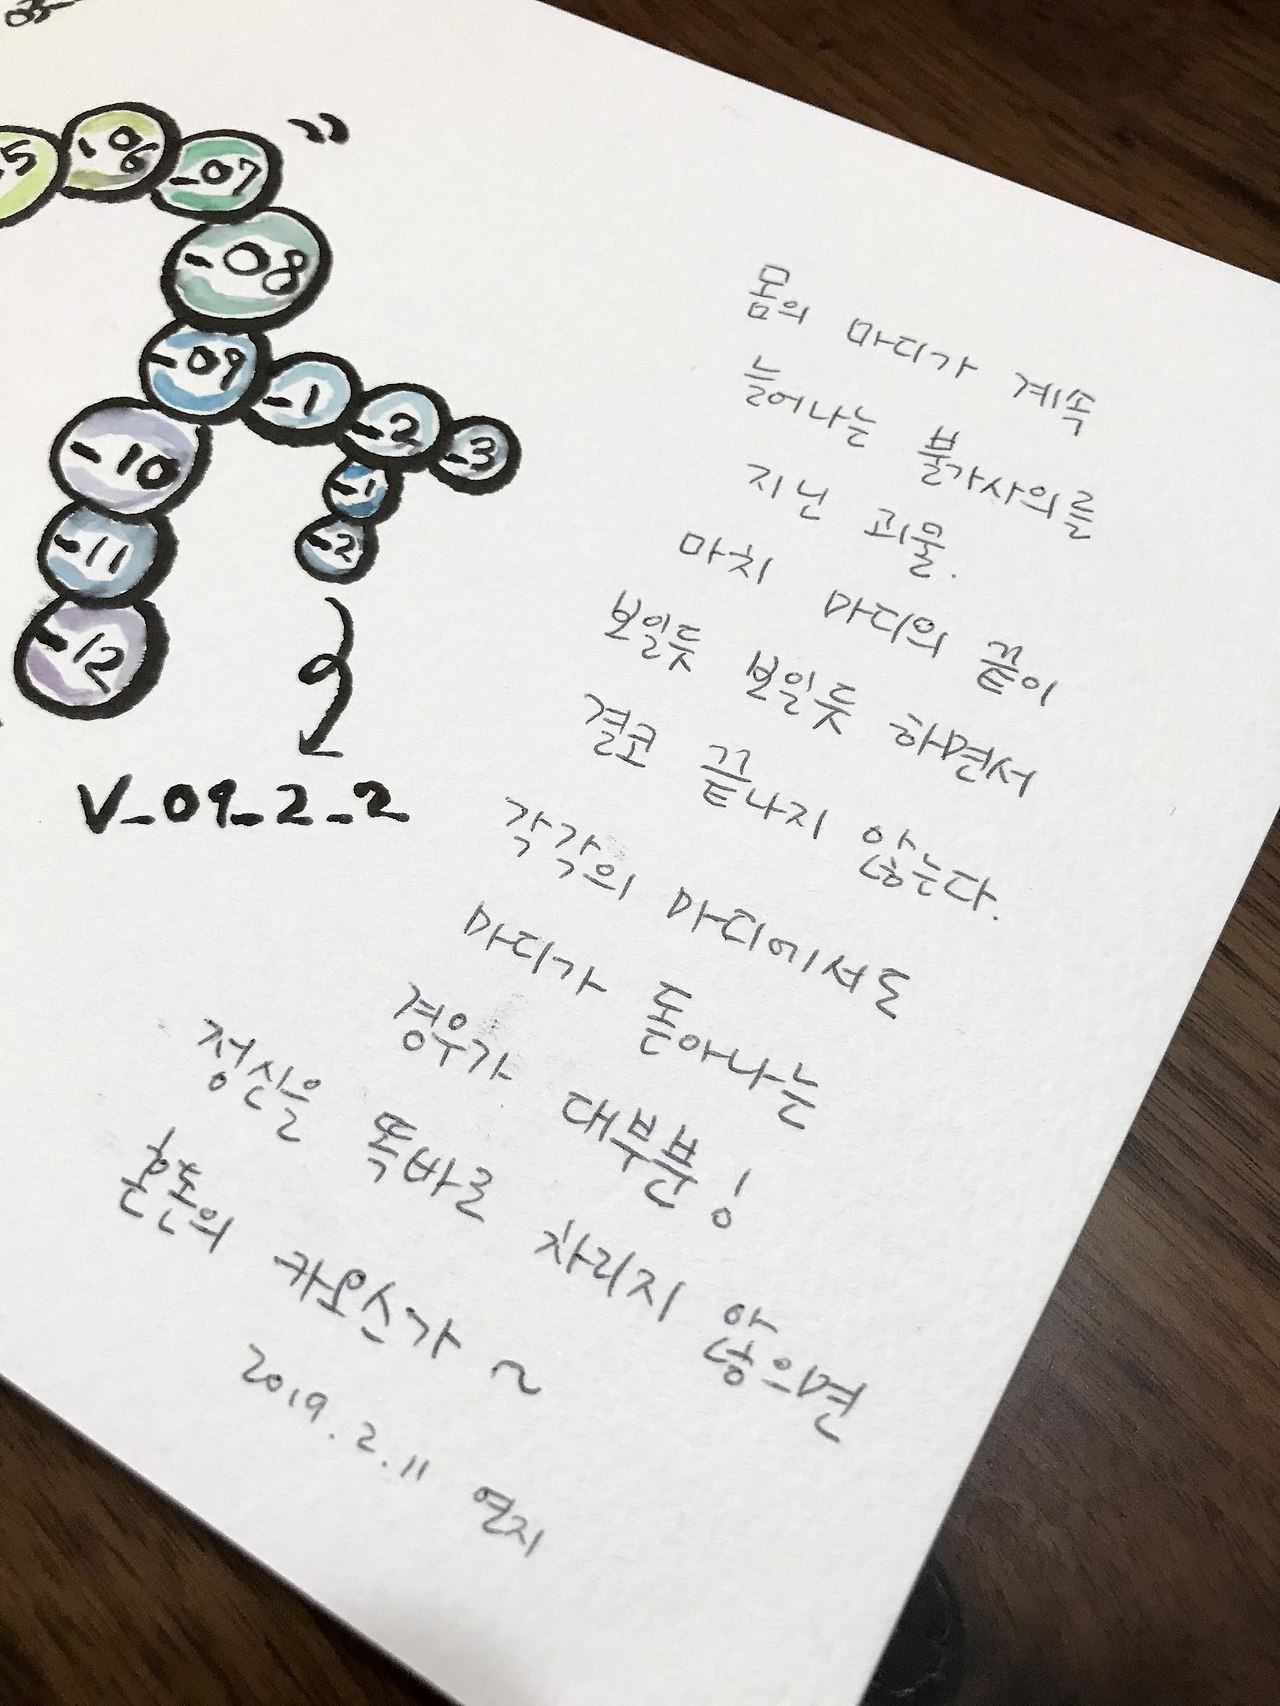 -06
-07
-08
-09
-1
-2
-3
-1
-2
-10
-11
-12
V_09_2_2
몸의 마디가 계속
늘어나는 불가사의를
지닌 괴물.
마치 마디의 끝이
보일듯 보일듯 하면서
결코 끝나지 않는다.
각각의 마디에서도
마디가 돋아나는
경우가 대부분!
정신을 똑바로 차리지 않으면
혼돈의 카오스가~
2019.2.11 연지